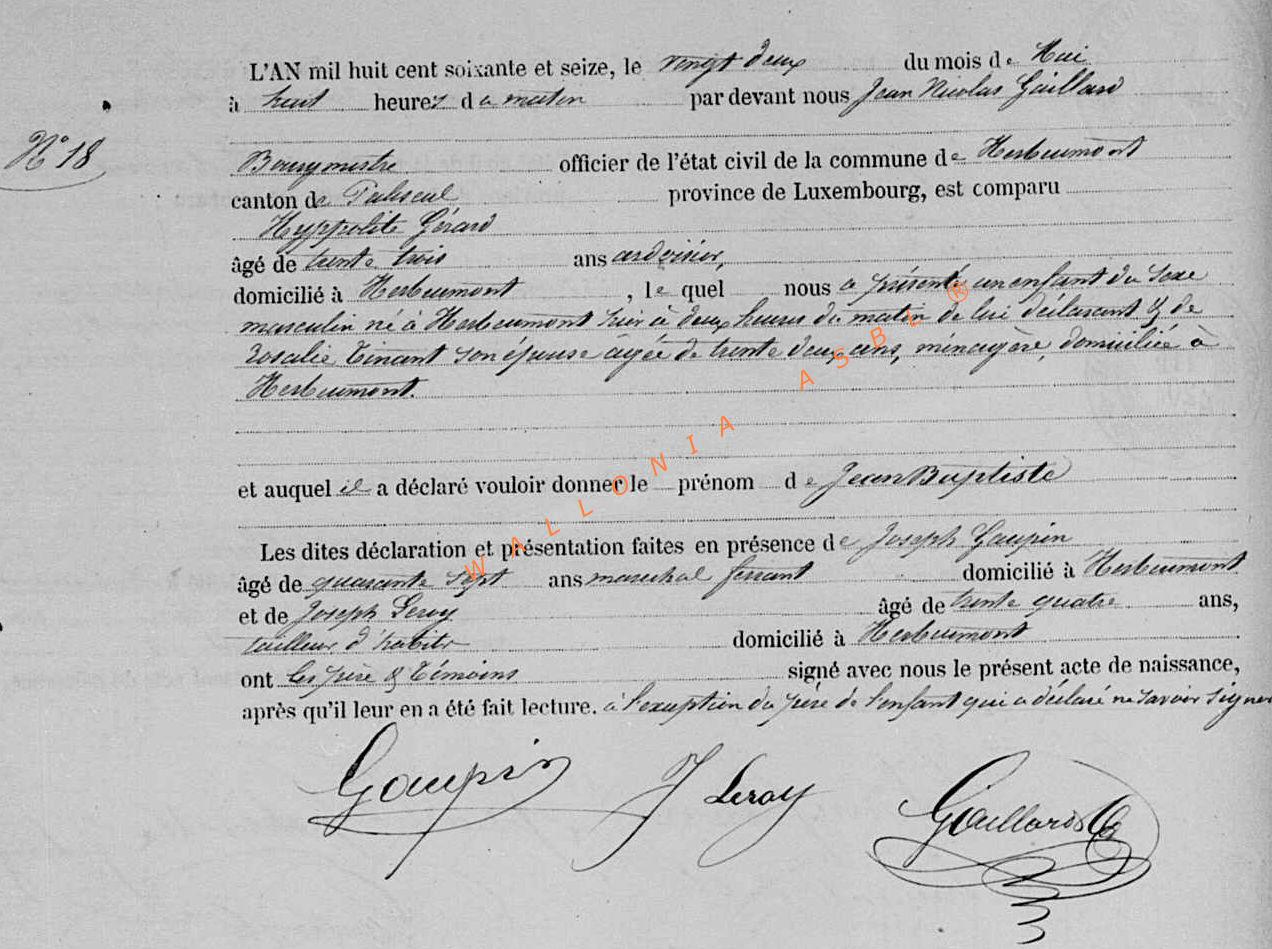 L'AN mil huit cent soixante et seize, le vingt deux du mois de Mai
à huit heures du matin par devant nous Jean Nicolas Gaillard
N° 18
Bourgmestre officier de l'état civil de la commune de Herbeumont
canton de Paliseul province de Luxembourg, est comparu
Hyppolite Gérard
âgé de trente trois ans ardoisier,
domicilié à Herbeumont, le quel nous a présenté un enfant du sexe
masculin né à Herbeumont hier à deux heures du matin de lui déclarant & de
Rosalie Tinant son épouse âgée de trente deux ans, ménagère, domiciliée à
Herbeumont.
et auquel il a déclaré vouloir donner le prénom de Jean Baptiste
Les dites déclaration et présentation faites en présence de Joseph Gaupin
âgé de quarante sept ans maréchal ferrant domicilié à Herbeumont
et de Joseph Leroy âgé de trente quatre ans,
tailleur d'habits domicilié à Herbeumont
ont les père & témoins signé avec nous le présent acte de naissance,
après qu'il leur en a été fait lecture. à l'exception du père de l'enfant qui a déclaré ne savoir signer
Gaupin J Leroy Gaillard
WALLONIA ASBL ®